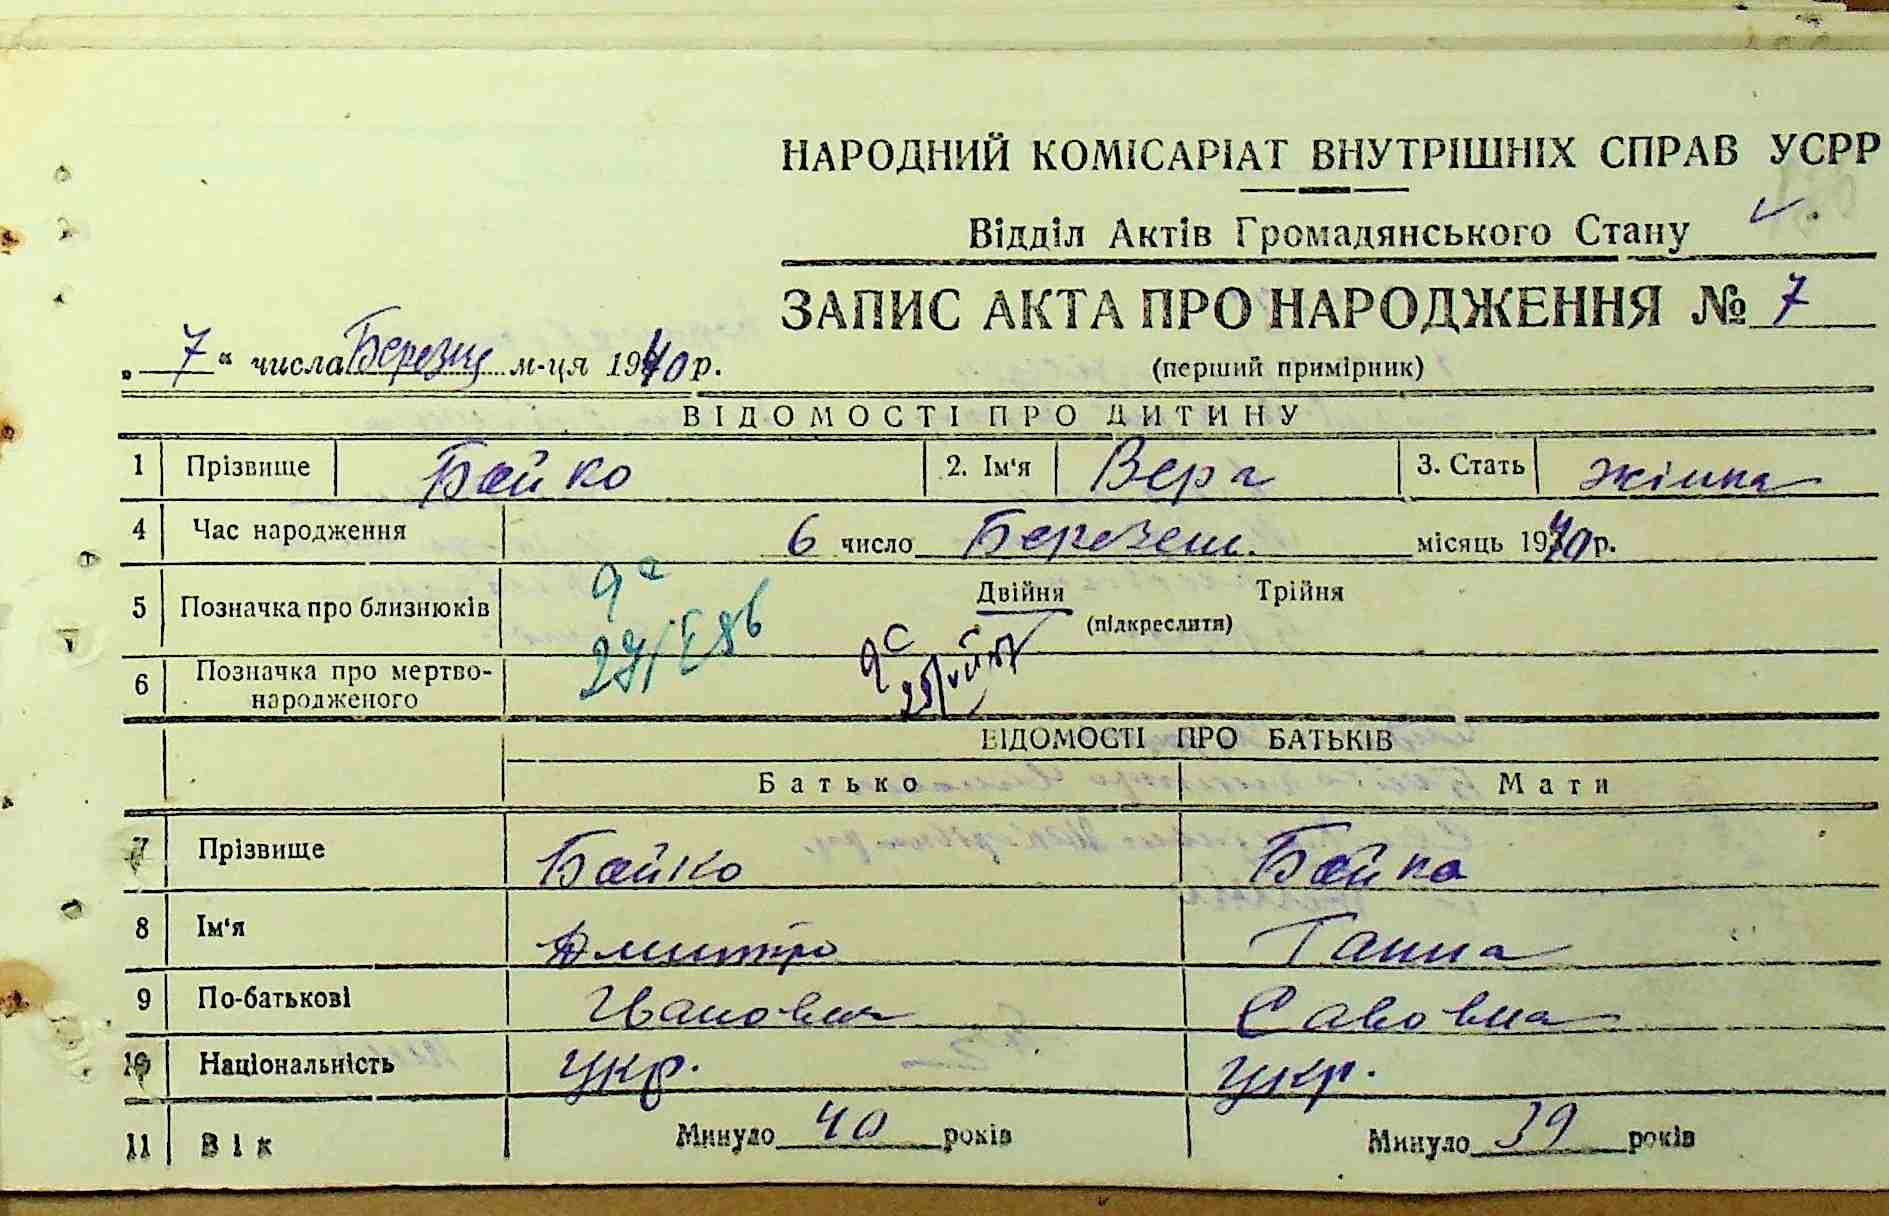 НАРОДНИЙ КОМІСАРІАТ ВНУТРІШНІХ СПРАВ УСРР
Відділ Актів Громадянського Стану
ЗАПИС АКТА ПРО НАРОДЖЕННЯ № 7
„ 7 “ числа Березня м-ця 1940 р.
(перший примірник)
ВІДОМОСТІ ПРО ДИТИНУ
1 Прізвище Бойко 2. Ім'я Вера 3. Стать жінка
4 Час народження 6 число Березень місяць 1940 р.
5 Позначка про близнюків Двійня Трійня
(підкреслити)
6 Позначка про мертво-
народженого
ВІДОМОСТІ ПРО БАТЬКІВ
Батько Мати
7 Прізвище Бойко Бойко
8 Ім'я Дмитро Ганна
9 По-батькові Іванович Савовна
10 Національність укр. укр.
11 Вік Минуло 40 років Минуло 39 років